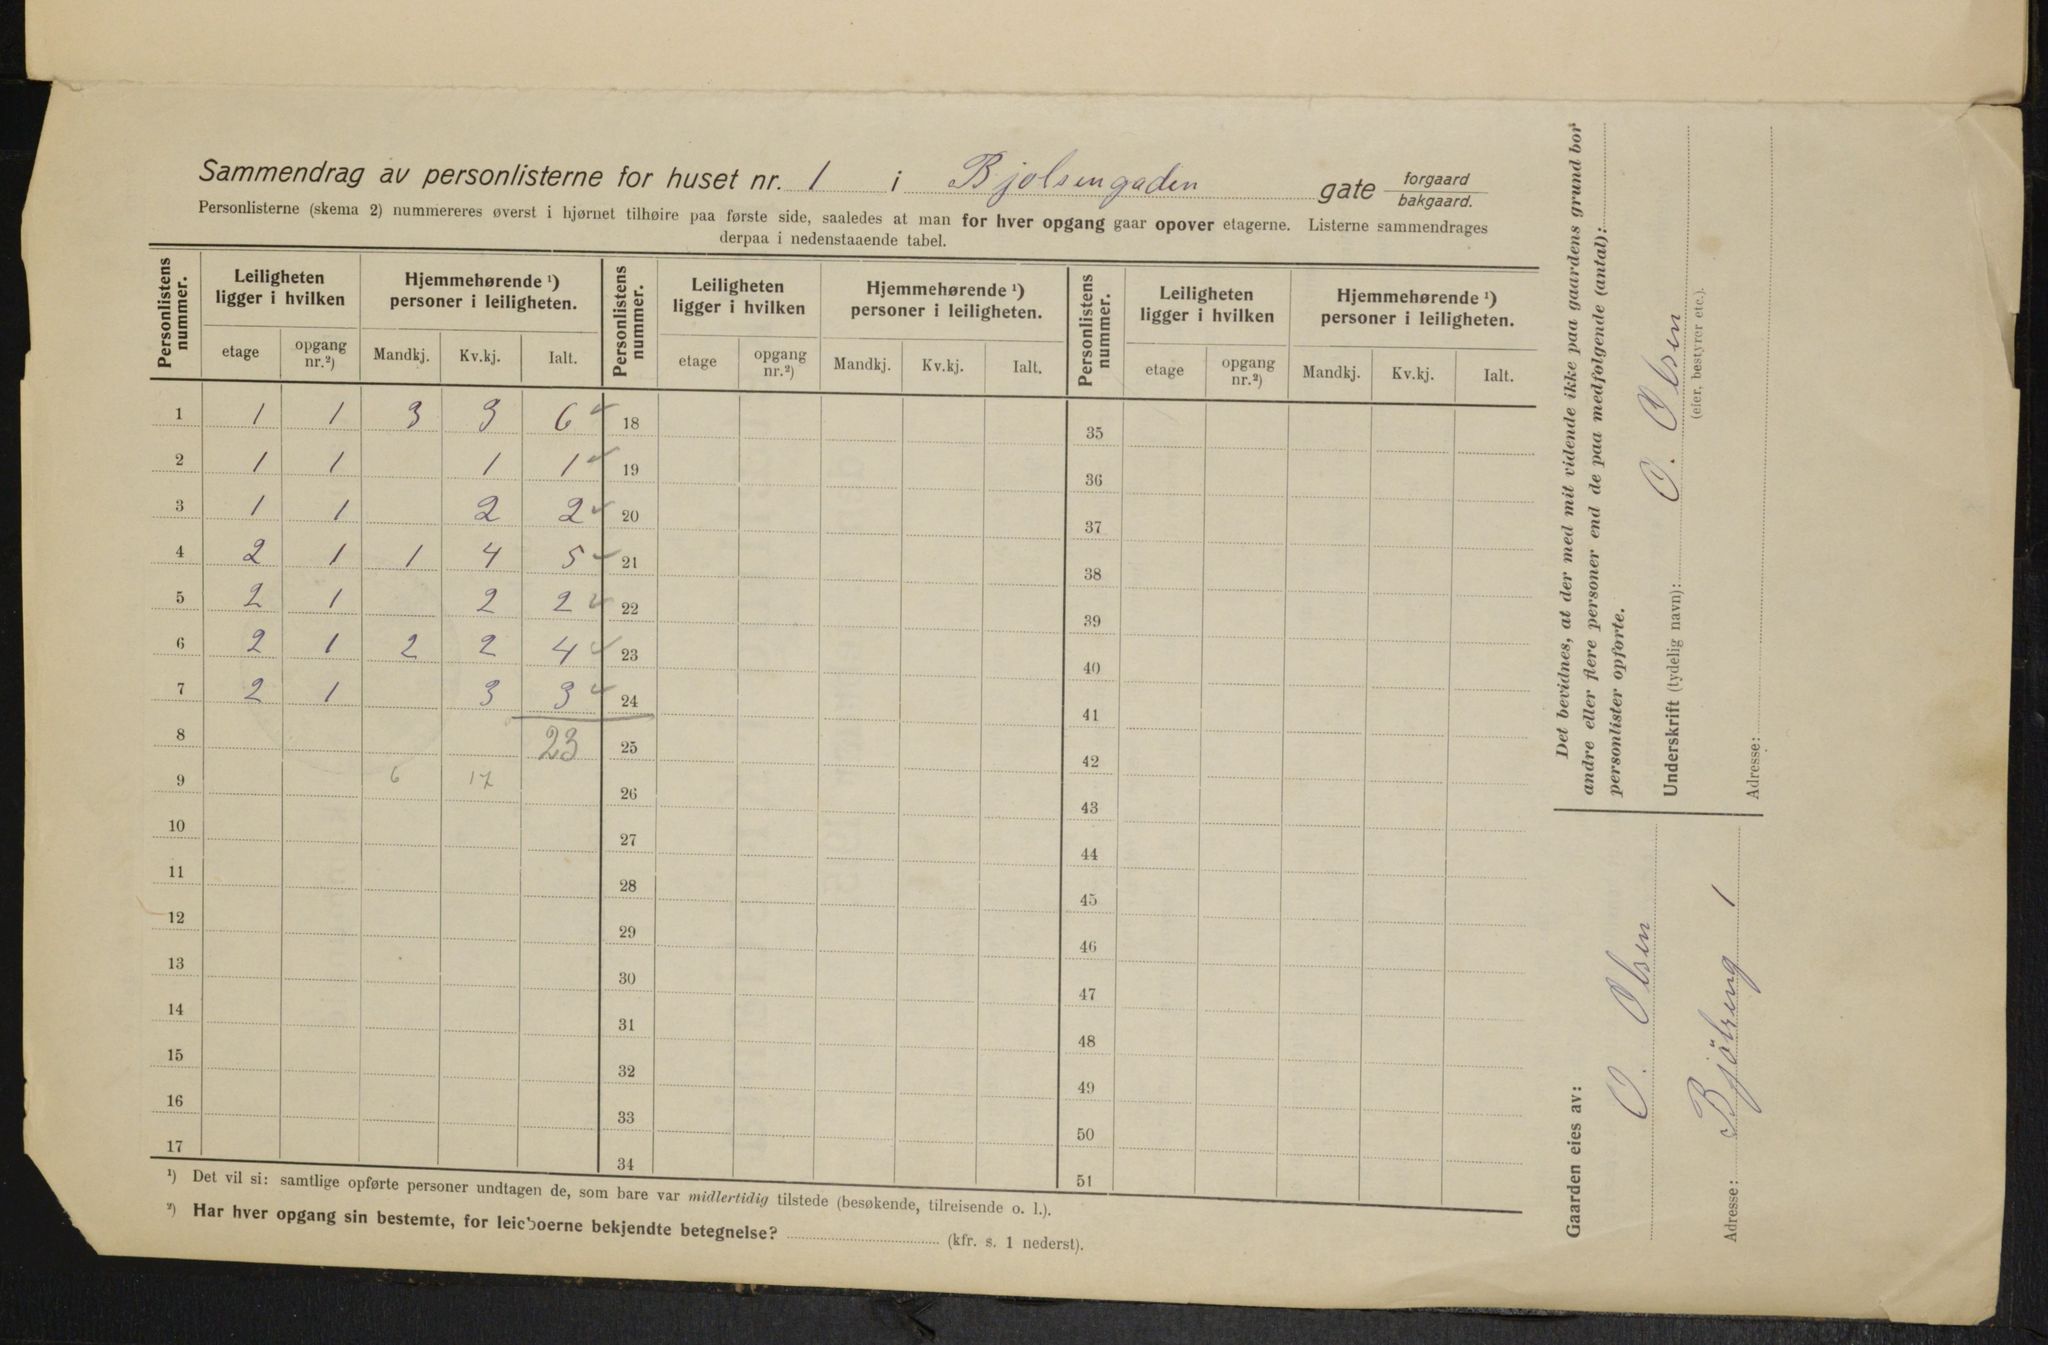 Sammendrag av personlisterne for huset nr. 1 i Bjolsengaden gate forgaard / bakgaard.
Personlisterne (skema 2) nummereres øverst i hjørnet tilhøire paa første side, saaledes at man for hver opgang gaar opover etagerne. Listerne sammendrages
derpaa i nedenstaaende tabel.
Personlistens nummer. Leiligheten ligger i hvilken Hjemmehørende ¹) personer i leiligheten. Personlistens nummer. Leiligheten ligger i hvilken Hjemmehørende ¹) personer i leiligheten. Personlistens nummer. Leiligheten ligger i hvilken Hjemmehørende ¹) personer i leiligheten.
etage opgang nr.²) Mandkj. Kv.kj. Ialt. etage opgang nr.²) Mandkj. Kv.kj. Ialt. etage opgang nr.²) Mandkj. Kv.kj. Ialt.
1 1 1 3 3 6 ✓ 18 35
2 1 1 1 1 ✓ 19 36
3 1 1 2 2 ✓ 20 37
4 2 1 1 4 5 ✓ 21 38
5 2 1 2 2 ✓ 22 39
6 2 1 2 2 4 ✓ 23 40
7 2 1 3 3 ✓ 24 41
8 23 25 42
9 6 17 26 43
10 27 44
11 28 45
12 29 46
13 30 47
14 31 48
15 32 49
16 33 50
17 34 51
¹) Det vil si: samtlige opførte personer undtagen de, som bare var midlertidig tilstede (besøkende, tilreisende o. l.).
²) Har hver opgang sin bestemte, for leieboerne bekjendte betegnelse? (kfr. s. 1 nederst).
Det bevidnes, at der med mit vidende ikke paa gaardens grund bor
andre eller flere personer end de paa medfølgende (antal):
personlister opførte.
Underskrift (tydelig navn): O. Olsen
(eier, bestyrer etc.).
Adresse:
Gaarden eies av:
O. Olsen
Adresse: Bjölseng 1